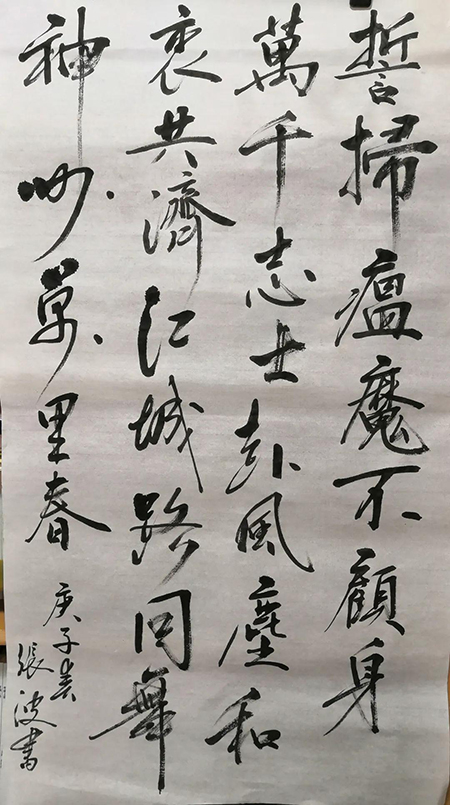 誓掃瘟魔不顧身
萬千志士赴風塵和
衷共濟江城路同舞
神州萬里春
庚子春
張波書